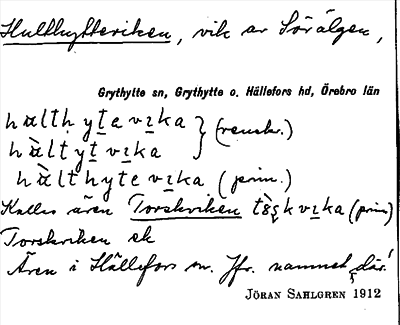 Hulthytteviken, vik av Sör älgen,
Grythytte sn, Grythytte o. Hällefors hd, Örebro län
hαlthytevɪka } (renskr.)
hὰltytvɪka
hὰlthytevɪka (prim.)
Kallas även Torskviken tὸʂkvɪka (prim)
Torskviken ek
Även i Hällefors sn. Jfr. namnet där!
JÖRAN SAHLGREN 1912